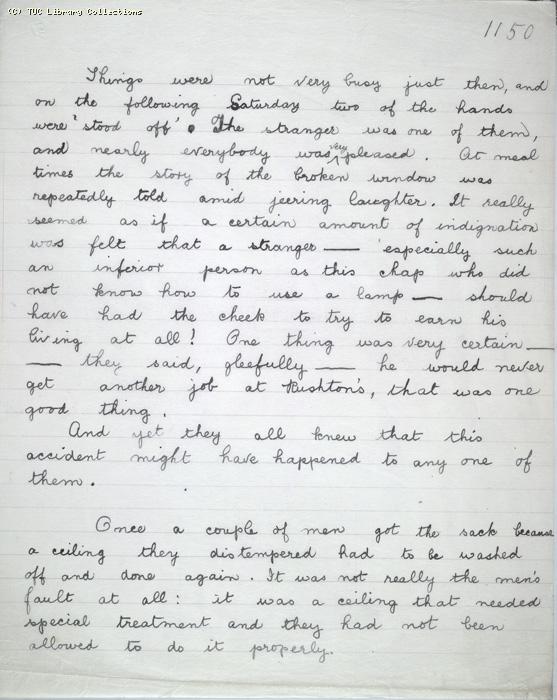 (C) TUC Library Collections
1150
Things were not very busy just then, and
on the following Saturday two of the hands
were 'stood off'. The stranger was one of them,
and nearly everybody was very pleased. At meal
times the story of the broken window was
repeatedly told amid jeering laughter. It really
seemed as if a certain amount of indignation
was felt that a stranger — especially such
an inferior person as this chap who did
not know how to use a lamp — should
have had the cheek to try to earn his
living at all! One thing was very certain —
— they said, gleefully — he would never
get another job at Rushton's, that was one
good thing.
And yet they all knew that this
accident might have happened to any one of
them.
Once a couple of men got the sack because
a ceiling they distempered had to be washed
off and done again. It was not really the men's
fault at all: it was a ceiling that needed
special treatment and they had not been
allowed to do it properly.